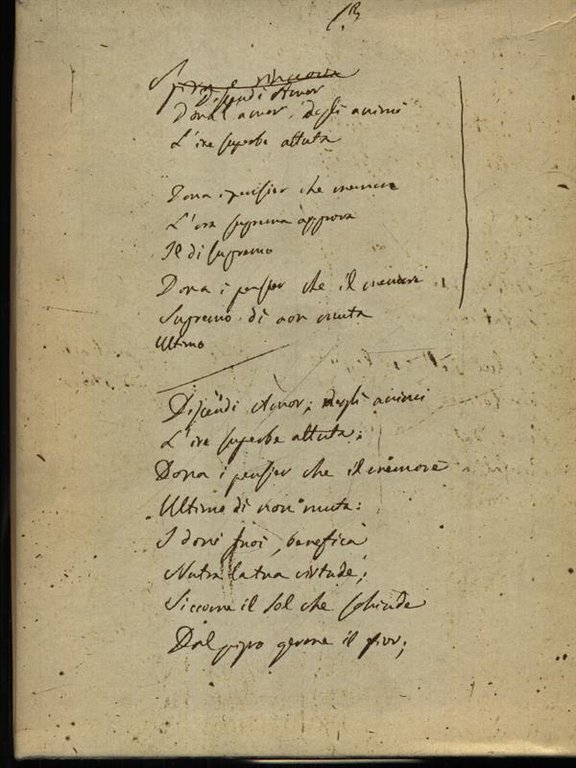 Spira e rincora
Discendi Amor
Dona l'amor, degli animi
L'ire superbe attuta
Dona i pensier che memore
L'ora suprema approva
Il di supremo
Dona i pensier che il memore
Supremo di non muta
Ultimo
Discendi Amor; negli animi
L'ire superbe attuta;
Dona i pensier che il memore
Ultimo di non muta:
I doni tuoi, benefica
Nutra la tua virtude;
Siccome il sol che schiude
Dal pigro germe il fior;